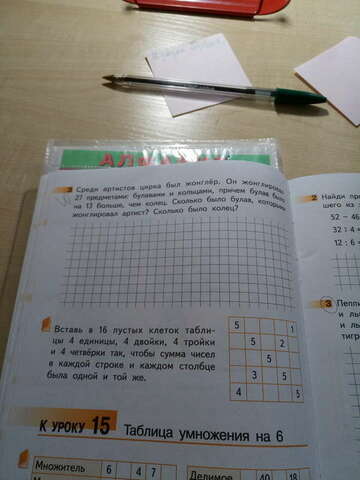 Среди артистов цирка был жонглёр. Он жонглировал
27 предметами: булавами и кольцами, причем булав было
на 13 больше, чем колец. Сколько было булав, которыми
жонглировал артист? Сколько было колец?
Вставь в 16 пустых клеток табли-
цы 4 единицы, 4 двойки, 4 тройки
и 4 четвёрки так, чтобы сумма чисел
в каждой строке и каждом столбце
была одной и той же.
5 1
5 2
5
3 5
4 5
К УРОКУ 15 Таблица умножения на 6
Множитель 6 4 7
2 Найди
шего из
52 – 46
32 : 4
12 : 6
3
и
и
тигр
Делимое 40 18